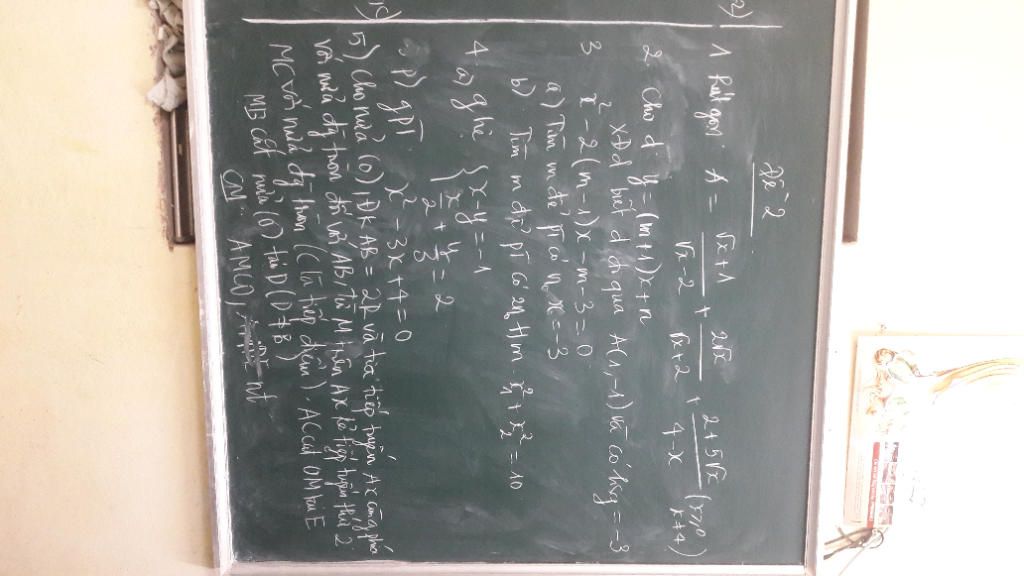 Đề 2
1 Rút gọn. A = \frac{√x+1}{√x-2} + \frac{2√x}{√x+2} + \frac{2+5√x}{4-x} (x≥0 x≠4)
2. Cho d y=(m+1)x+n
XĐ d biết d đi qua A(1,-1) và có hsg = -3
3 x² - 2(m-1)x - m - 3 = 0
a) Tìm m để pt có n x = -3
b) Tìm m để pt có 2n tm. x₁² + x₂² = 10
4 a) g hệ { x-y=-1
\frac{x}{2} + \frac{y}{3} = 2
b) gpt x² - 3x + 4 = 0
5) Cho nửa (O) ĐK AB = 2R và tia tiếp tuyến Ax cùng phía
với nửa đg tròn đối với AB, từ M trên Ax kẻ tiếp tuyến thứ 2
MC với nửa đg tròn (C là tiếp điểm). AC cắt OM tại E
MB cắt nửa (O) tại D (D≠B)
CM: AMCO, nt
2)